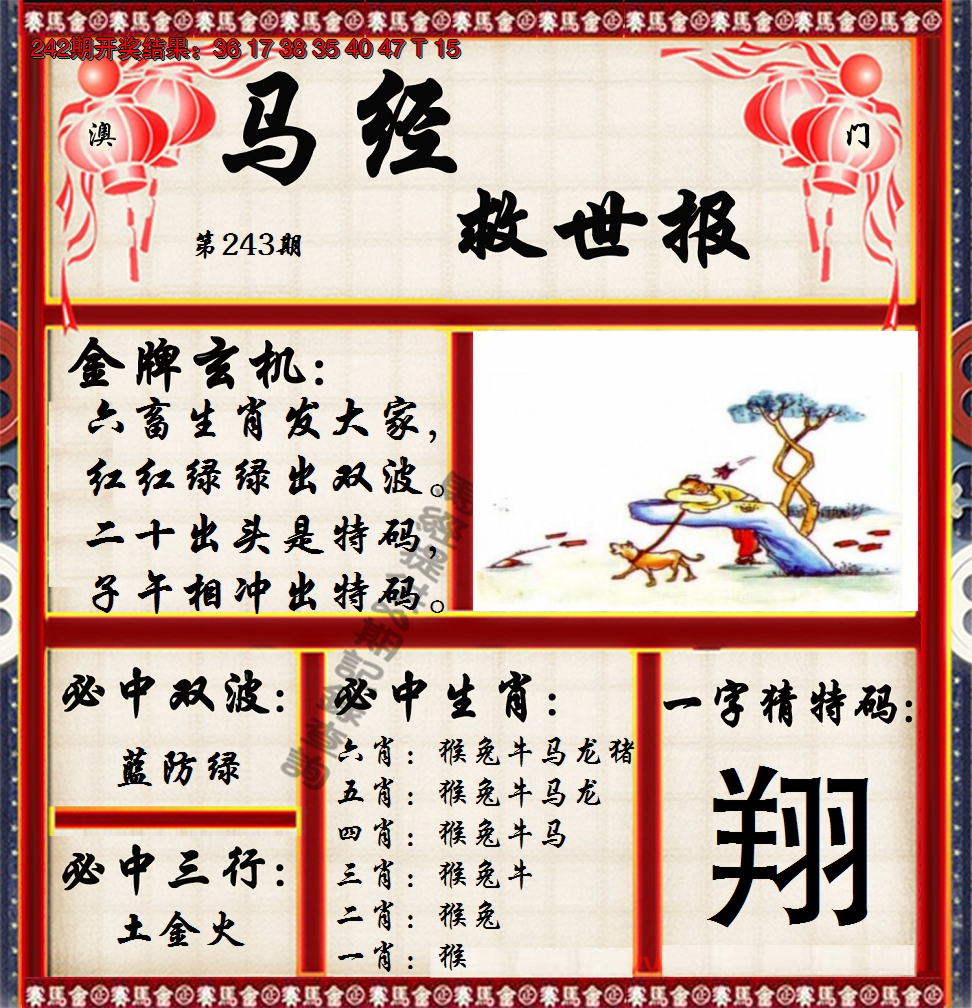 242期开奖结果：36 17 38 35 40 47 T 15
澳
门
马经
救世报
第243期
金牌玄机：
六畜生肖发大家，
红红绿绿出双波。
二十出头是特码，
子午相冲出特码。
必中双波：
蓝防绿
必中三行：
土金火
必中生肖：
六肖：猴兔牛马龙猪
五肖：猴兔牛马龙
四肖：猴兔牛马
三肖：猴兔牛
二肖：猴兔
一肖：猴
一字猜特码：
翔